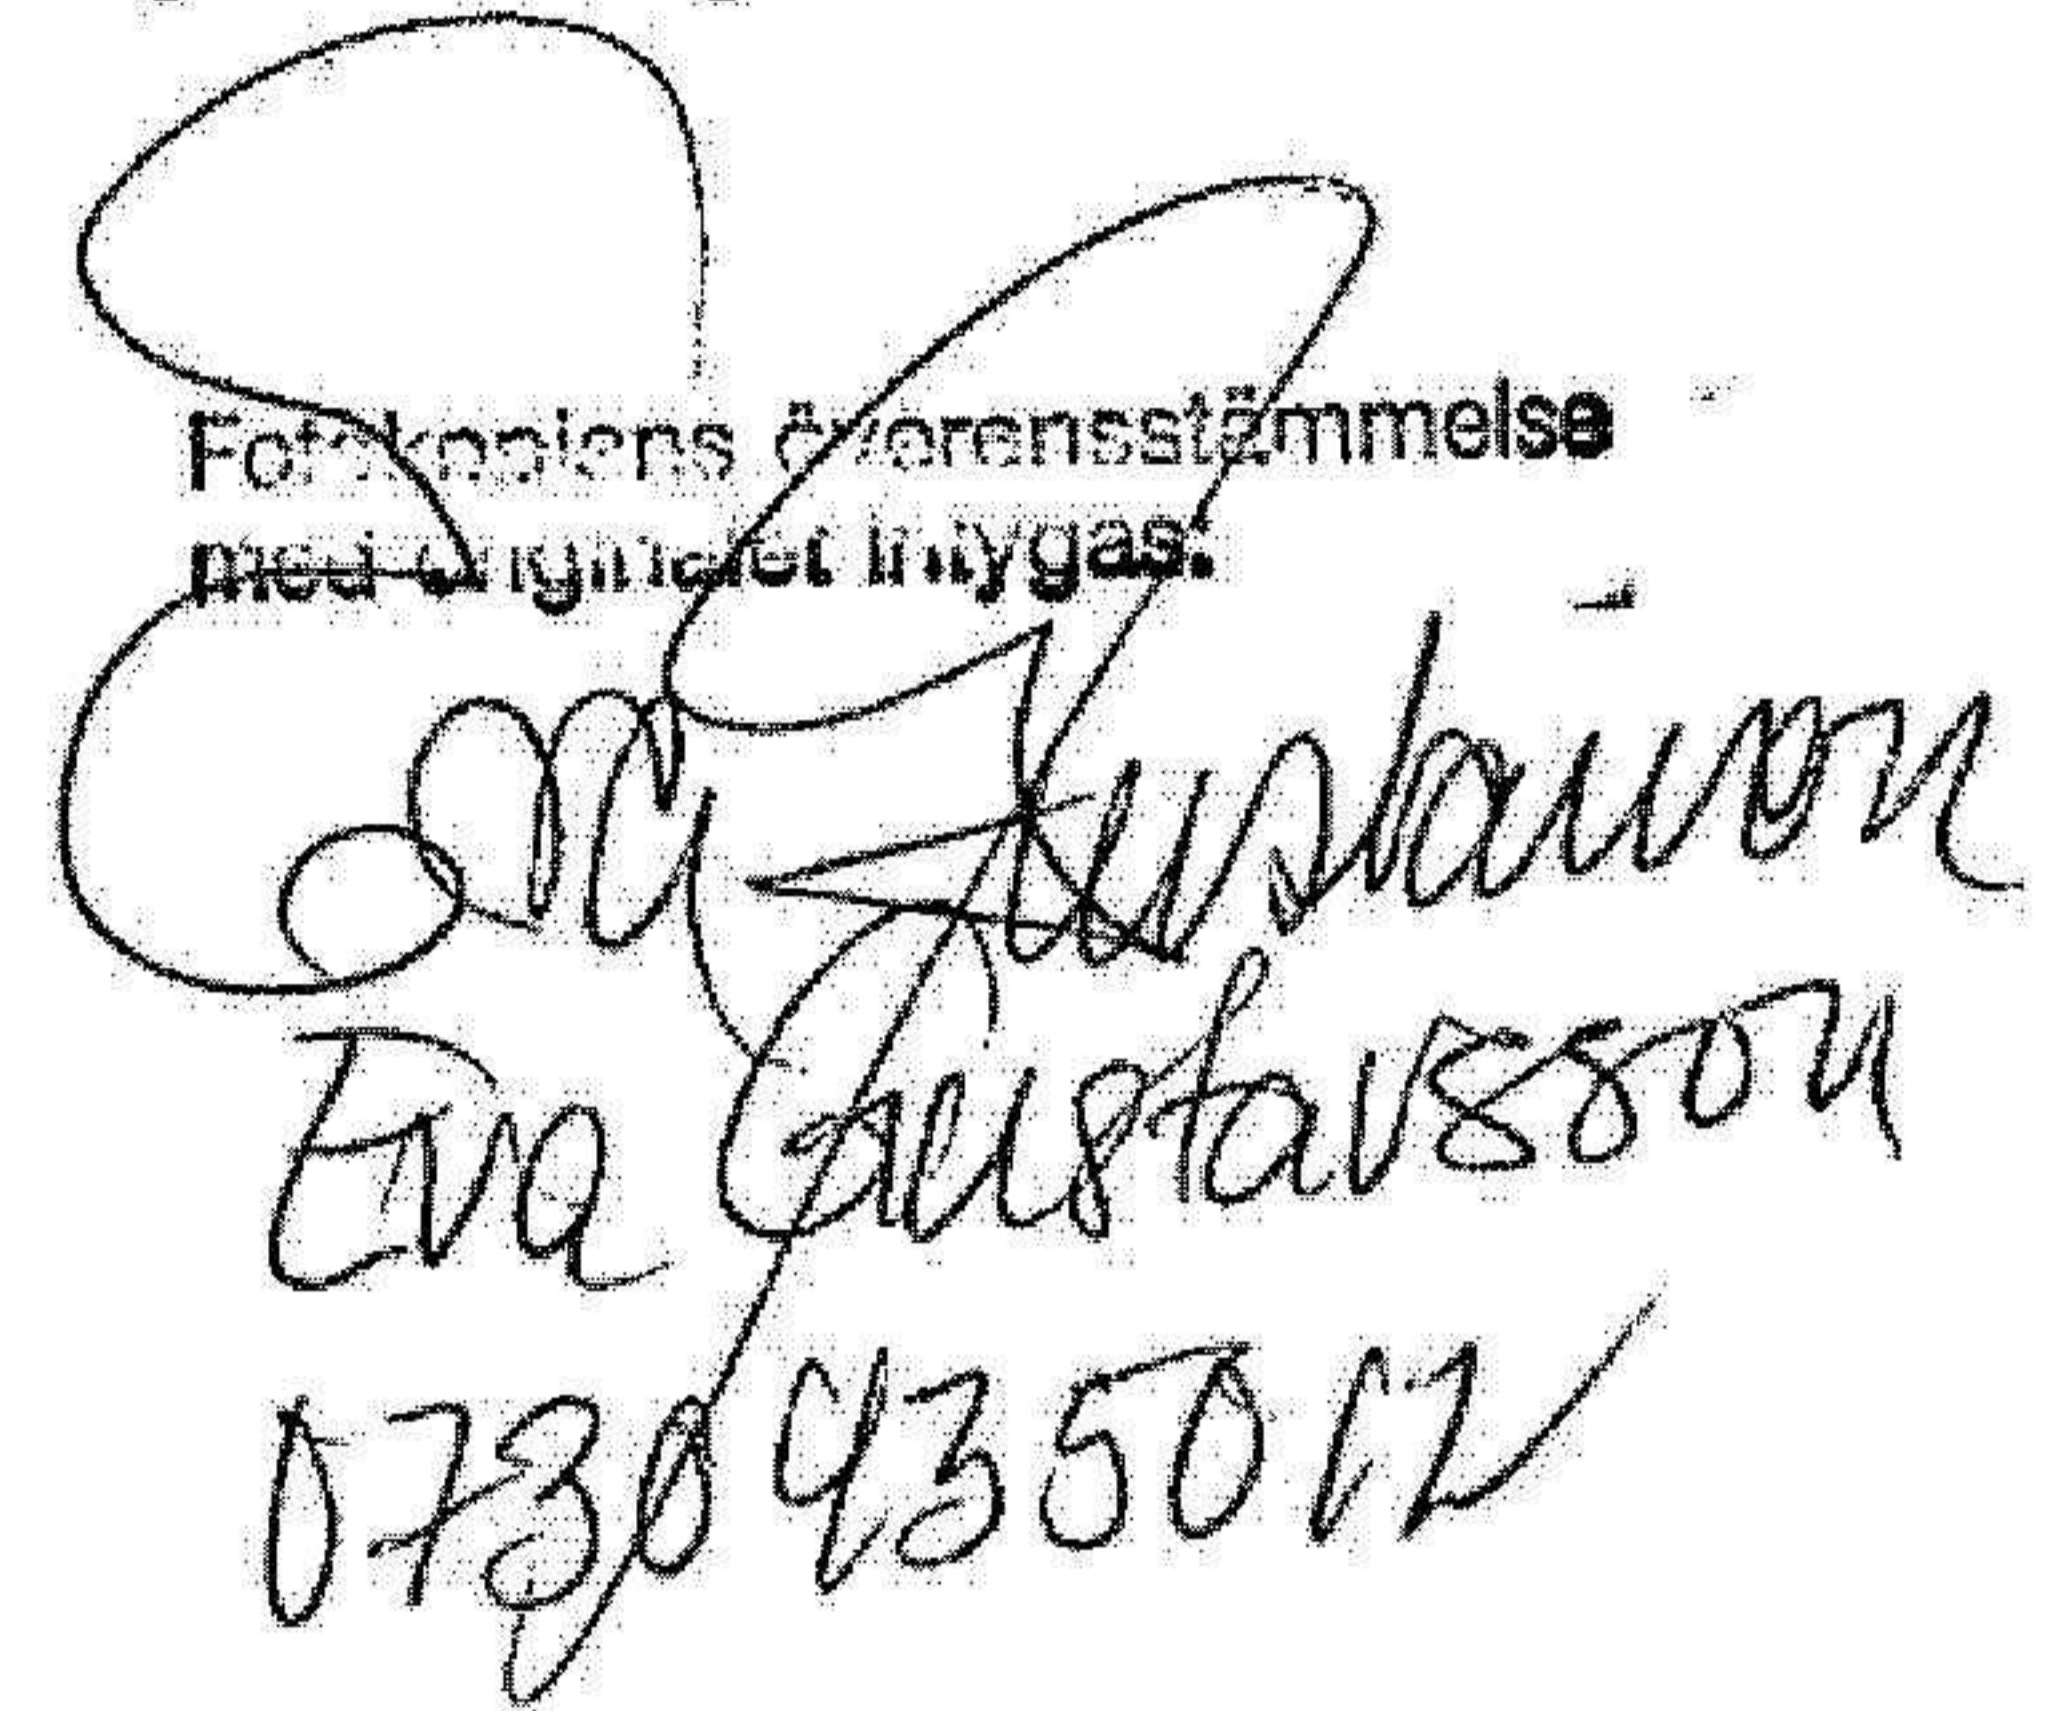 Fotokopiens överensstämmelse
med originalet intygas:
Eva Gustavsson
Eva Gustavsson
0730 435012